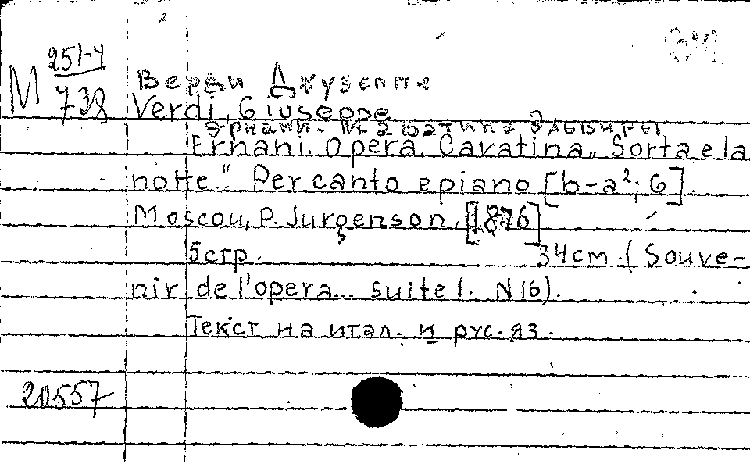 M 251-4
738
Верди Джузеппе
Verdi, Giuseppe
Эрнани. Каватина Эльвиры
Ernani. Opera. Cavatina „Sorta e la
notte“. Per canto e piano [b-a²; G]
Moscou, P. Jurgenson, [1876]
5 стр. 34cm. (Souve-
nir de l'opera.. suite 1. N16).
Текст на итал. и рус. яз.
20557